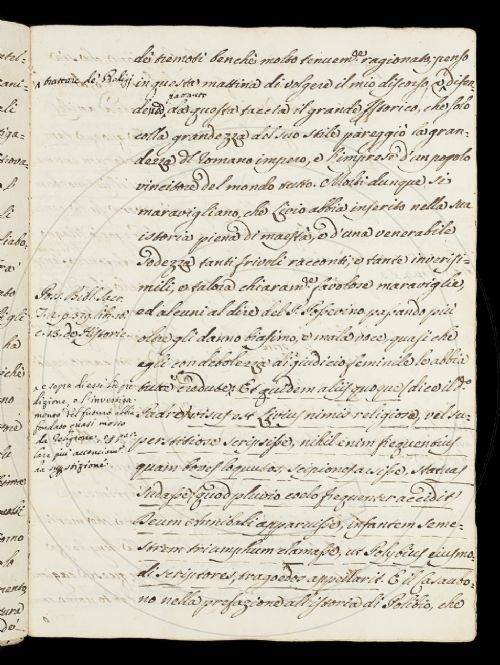 de' tremoti benchè molto tenuem.te ragionato, penso
in questa mattina di volgere il mio discorso, e difen-
dendo da questa taccia il grande Istorico, che solo
colla grandezza del suo stile pareggiò la gran-
dezza del Romano impero, e l'imprese d'un popolo
vincitore del mondo tutto. Molti dunque si
maravigliano, che Livio abbia inserito nella sua
istoria piena di maestà, e d'una venerabile
sodezza tanti frivoli racconti, e tante inverisi-
mili, e talora chiaram.te favolose maraviglie,
ed alcuni al dire del P. Possevino pasando più
oltre gli danno biasimo, e mala voce, quasi che
egli con debolezza di giudicio feminile le abbia
credute. Et quidem aliis quoque (dice il d.o
Padre) visus est Livius nimis religiose, vel su-
perstitiose scripsisse, nihil enim frequentius
quam boves loquutos, scipiones arsisse, statuas
sudasse (quod pluvio coelo frequenter accidit)
Deum Annibali apparuisse, infantem seme-
strem triumphum clamasse, ut Polybius eiusmo-
di scriptores, tragoedos appellarit. E il Casaubo-
no nella prefazione all'istoria di Polibio, che
trattare de' Relig
Pos. Bibl. selec.
e sopra di essi
del futuro abbia
fondato quasi mosso
da Religione, o
di superstizione